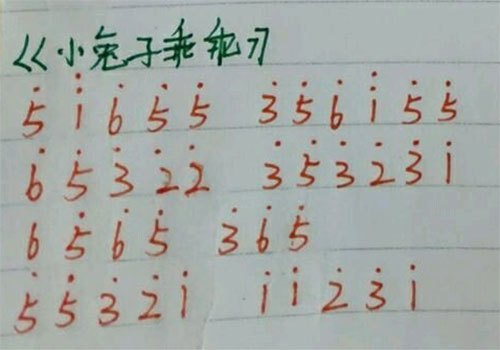 《小兔子乖乖》
5̇ i̇ 6̇ 5̇ 5̇ 3̇ 5̇ 6̇ i̇ 5̇ 5̇
6̇ 5̇ 3̇ 2̇ 2̇ 3̇ 5̇ 3̇ 2̇ 3̇ i
6 5̇ 6̇ 5̇ 3̇ 6̇ 5̇
5̇ 5̇ 3̇ 2̇ i i i 2̇ 3̇ i